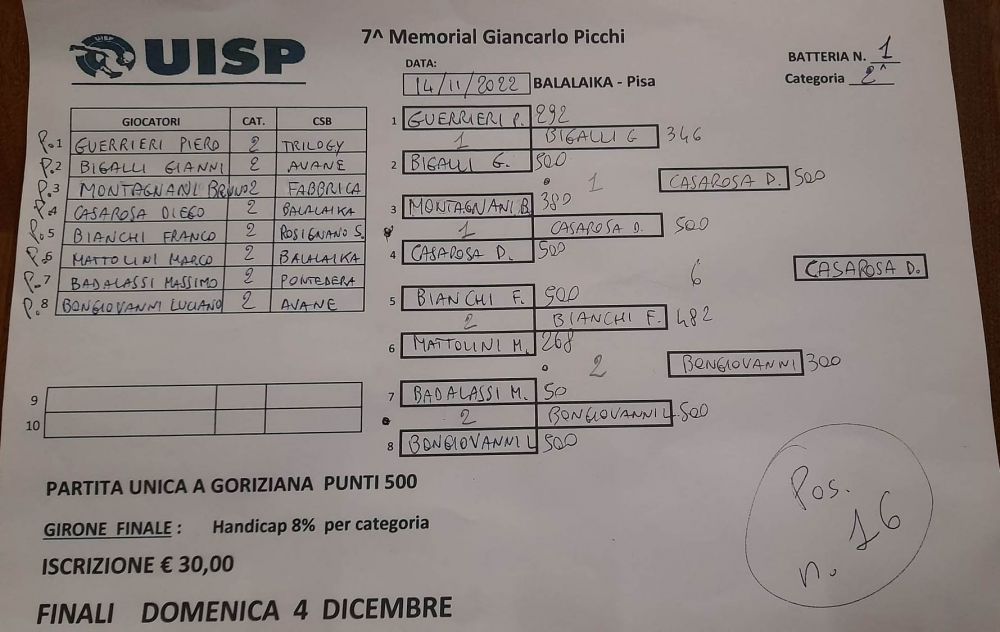 UISP
7^ Memorial Giancarlo Picchi
DATA:
14/11/2022 BALALAIKA - Pisa
BATTERIA N. 1
Categoria 2^
GIOCATORI CAT. CSB
P.1 GUERRIERI PIERO 2 TRILOGY
P.2 BIGALLI GIANNI 2 AVANE
P.3 MONTAGNANI BRUNO 2 FABBRICA
P.4 CASAROSA DIEGO 2 BALALAIKA
P.5 BIANCHI FRANCO 2 ROSIGNANO S.
P.6 MATTOLINI MARCO 2 BALALAIKA
P.7 BADALASSI MASSIMO 2 PONTEDERA
P.8 BONGIOVANNI LUCIANO 2 AVANE
9
10
1 GUERRIERI P. 292
1 BIGALLI G 346
2 BIGALLI G. 500
1 CASAROSA D. 500
3 MONTAGNANI B. 380
1 CASAROSA D. 500
4 CASAROSA D. 500
6 CASAROSA D.
5 BIANCHI F. 500
2 BIANCHI F. 482
6 MATTOLINI M. 268
2 BONGIOVANNI 300
7 BADALASSI M. 50
2 BONGIOVANNI L. 500
8 BONGIOVANNI L 500
PARTITA UNICA A GORIZIANA PUNTI 500
GIRONE FINALE : Handicap 8% per categoria
ISCRIZIONE € 30,00
FINALI DOMENICA 4 DICEMBRE
Pos.
n. 16